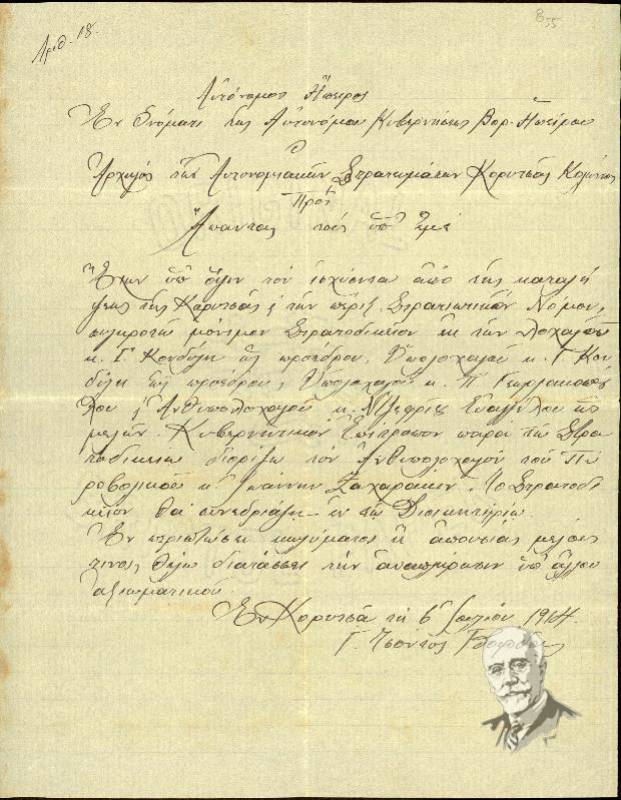 Αριθ. 18.
855
Αὐτόνομος Ἤπειρος
Ἐν Ὀνόματι τῆς Αὐτονόμου Κυβερνήσεως Βορ. Ἠπείρου
Ὁ
Ἀρχηγὸς τῶν Αὐτονομιακῶν Στρατευμάτων Κορυτσᾶς Κολώνιας
Πρὸς
Ἅπαντας τοὺς ὑπ' Ἐμὲ
Ἔχων ὑπ' ὄψιν τὸν ἰσχύοντα ἀπὸ τῆς καταλή
ψεως τῆς Κορυτσᾶς & τῶν πέριξ Στρατιωτικὸν Νόμον,
συγκροτῶ μόνιμον Στρατοδικεῖον ἐκ τῶν Λοχαγοῦ
κ. Γ. Κονδύλη ὡς προέδρου, Ὑπολοχαγοῦ κ. Γ. Κον
δύλη ὡς προέδρου, Ὑπολοχαγοῦ κ. Π. Γεωργακοπού
λου & Ἀνθυπολοχαγοῦ κ. Εὐαγγέλου ὡς
μελῶν. Κυβερνητικὸν Ἐπίτροπον παρὰ τῷ Στρα
τοδικείῳ διορίζω τὸν Ἀνθυπολοχαγὸν τοῦ Πυ
ροβολικοῦ κ. Ἰωάννην Ζαχαράκην. Τὸ Στρατοδι
κεῖον θὰ συνεδριάζῃ ἐν τῷ Διοικητηρίῳ.
Ἐν περιπτώσει κωλύματος ἢ ἀπουσίας μέλους
τινος θέλω διατάσσει τὴν ἀναπλήρωσιν ὑπ' ἄλλου
ἀξιωματικοῦ
Ἐν Κορυτσᾷ τῇ 6 Ἰουλίου 1914.
Γ. Τσόντος Βάρδας